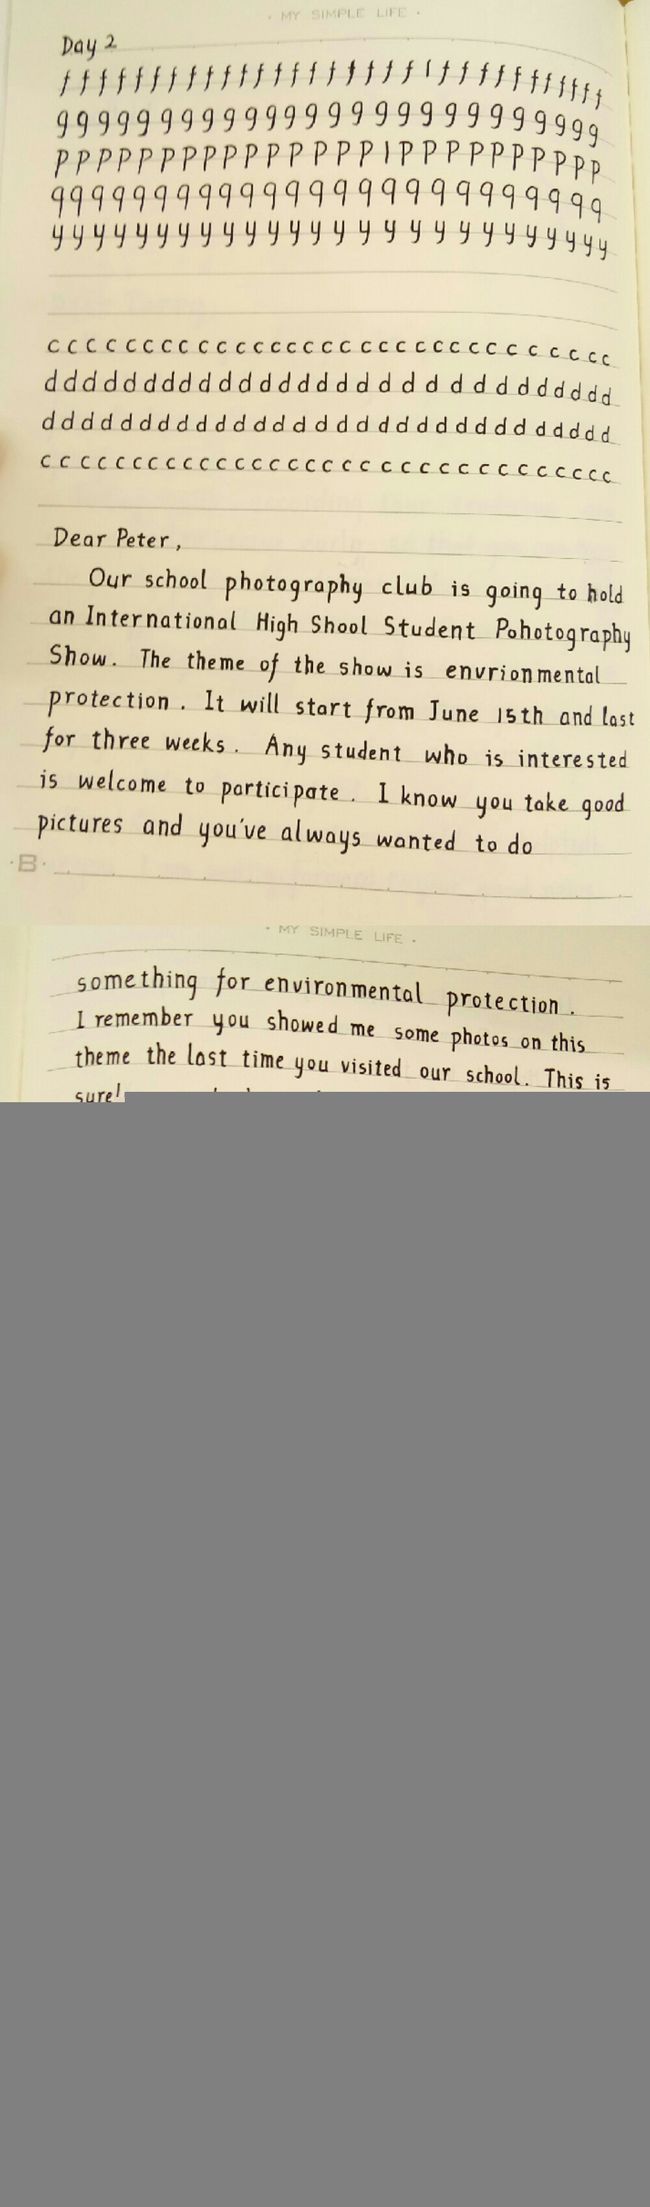 · MY SIMPLE LIFE ·
Day 2
f f f f f f f f f f f f f f f f f f f f f l f f f f f f f f f f f
g g g g g g g g g g g g g g g g g g g g g g g g g g g
p p p p p p p p p p p p p p p l p p p p p p p p p p
q q q q q q q q q q q q q q q q q q q q q q q q q
y y y y y y y y y y y y y y y y y y y y y y y y y y
c c c c c c c c c c c c c c c c c c c c c c c c c c c c c c
d d d d d d d d d d d d d d d d d d d d d d d d d d d d d
d d d d d d d d d d d d d d d d d d d d d d d d d d d d d
c c c c c c c c c c c c c c c c c c c c c c c c c c c c c c c
Dear Peter,
Our school photography club is going to hold
an International High Shool Student Pohotography
Show. The theme of the show is envrionmental
protection. It will start from June 15th and last
for three weeks. Any student who is interested
is welcome to participate. I know you take good
pictures and you've always wanted to do
·8·
· MY SIMPLE LIFE ·
something for environmental protection.
I remember you showed me some photos on this
theme the last time you visited our school. This is
sure!